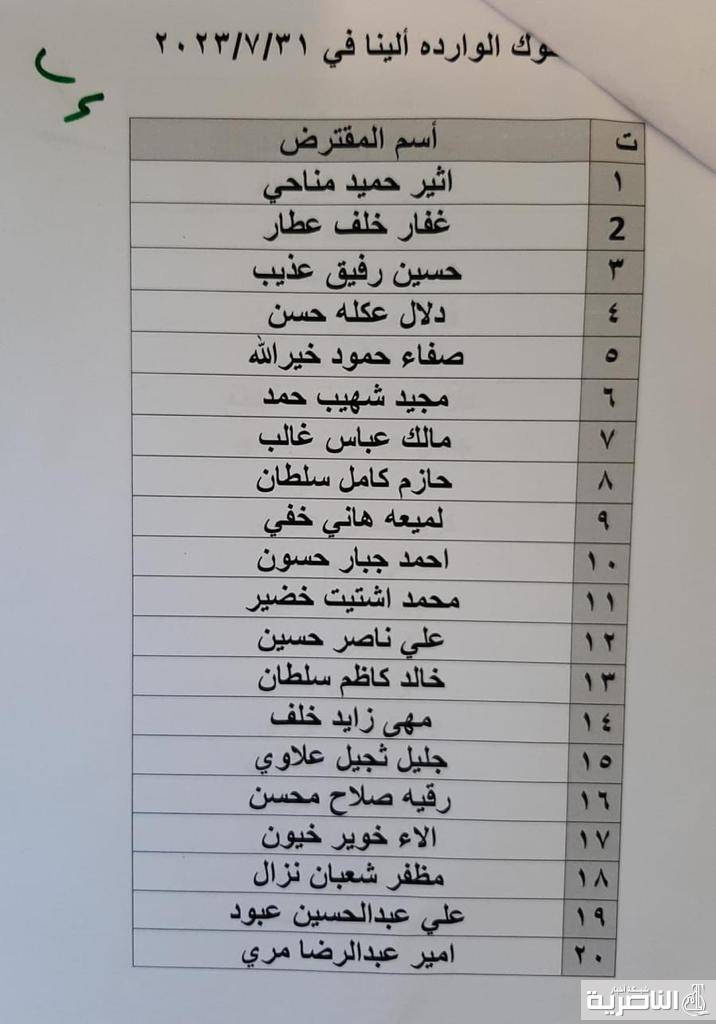 الوارده ألينا في ٢٠٢٣/٧/٣١
ت أسم المقترض
١ اثير حميد مناحي
2 غفار خلف عطار
٣ حسين رفيق عذيب
٤ دلال عكله حسن
٥ صفاء حمود خيرالله
٦ مجيد شهيب حمد
٧ مالك عباس غالب
٨ حازم كامل سلطان
٩ لميعه هاني خفي
١٠ احمد جبار حسون
١١ محمد اشتيت خضير
١٢ علي ناصر حسين
١٣ خالد كاظم سلطان
١٤ مهى زايد خلف
١٥ جليل ثجيل علاوي
١٦ رقيه صلاح محسن
١٧ الاء خوير خيون
١٨ مظفر شعبان نزال
١٩ علي عبدالحسين عبود
٢٠ امير عبدالرضا مري
شبكة أخبار
الناصرية